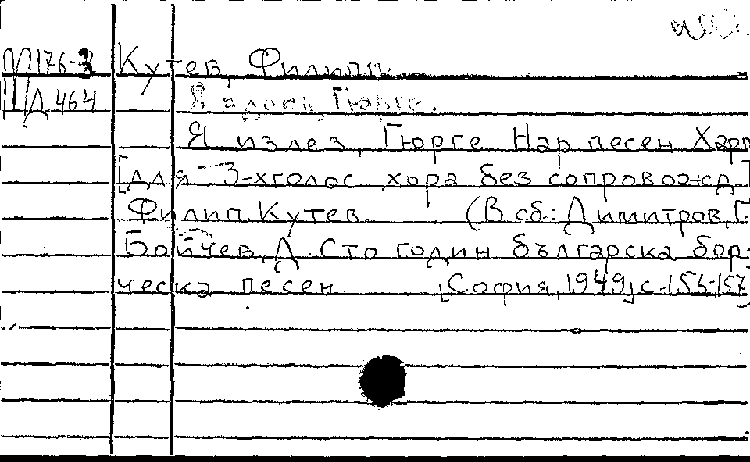 М176-3 Кутев, Филипп
Д464 Я излез, Гюрге.
Я излез, Гюрге Нар песен Харм
[для 3-хголос хора без сопровожд.]
Филип Кутев (В сб.: Димитров, Г.
Бойчев, Д. Сто годин българска бор-
ческа песен [София, 1949, с. 156-157